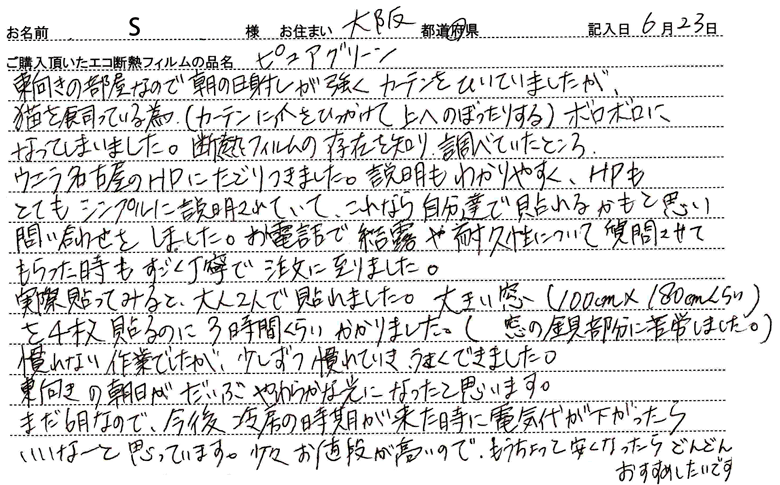 お名前 S 様 お住まい 大阪 都道府県 記入日 6月23日
ご購入頂いたエコ断熱フィルムの品名 ピュアグリーン
東向きの部屋なので朝の日射しが強くカーテンをひいていましたが、
猫を飼っている為、(カーテンに爪をひっかけて上へのぼったりする)ボロボロに
なってしまいました。断熱フィルムの存在を知り、調べていたところ、
ウニラ名古屋のHPにたどりつきました。説明もわかりやすく、HPも
とてもシンプルに説明されていて、これなら自分達で貼れるかもと思い
問い合わせをしました。お電話で結露や耐久性について質問させて
もらった時もすごく丁寧で注文に至りました。
実際貼ってみると、大人2人で貼れました。大きい窓(100cm×180cmくらい)
を4枚貼るのに3時間くらいかかりました。(窓の金具部分に苦労しました。)
慣れない作業でしたが、少しずつ慣れていきうまくできました。
東向きの朝日がだいぶやわらかな光になったと思います。
まだ6月なので、今後冷房の時期が来た時に電気代が下がったら
いいなーと思っています。少々お値段が高いので、もうちょっと安くなったらどんどん
おすすめしたいです